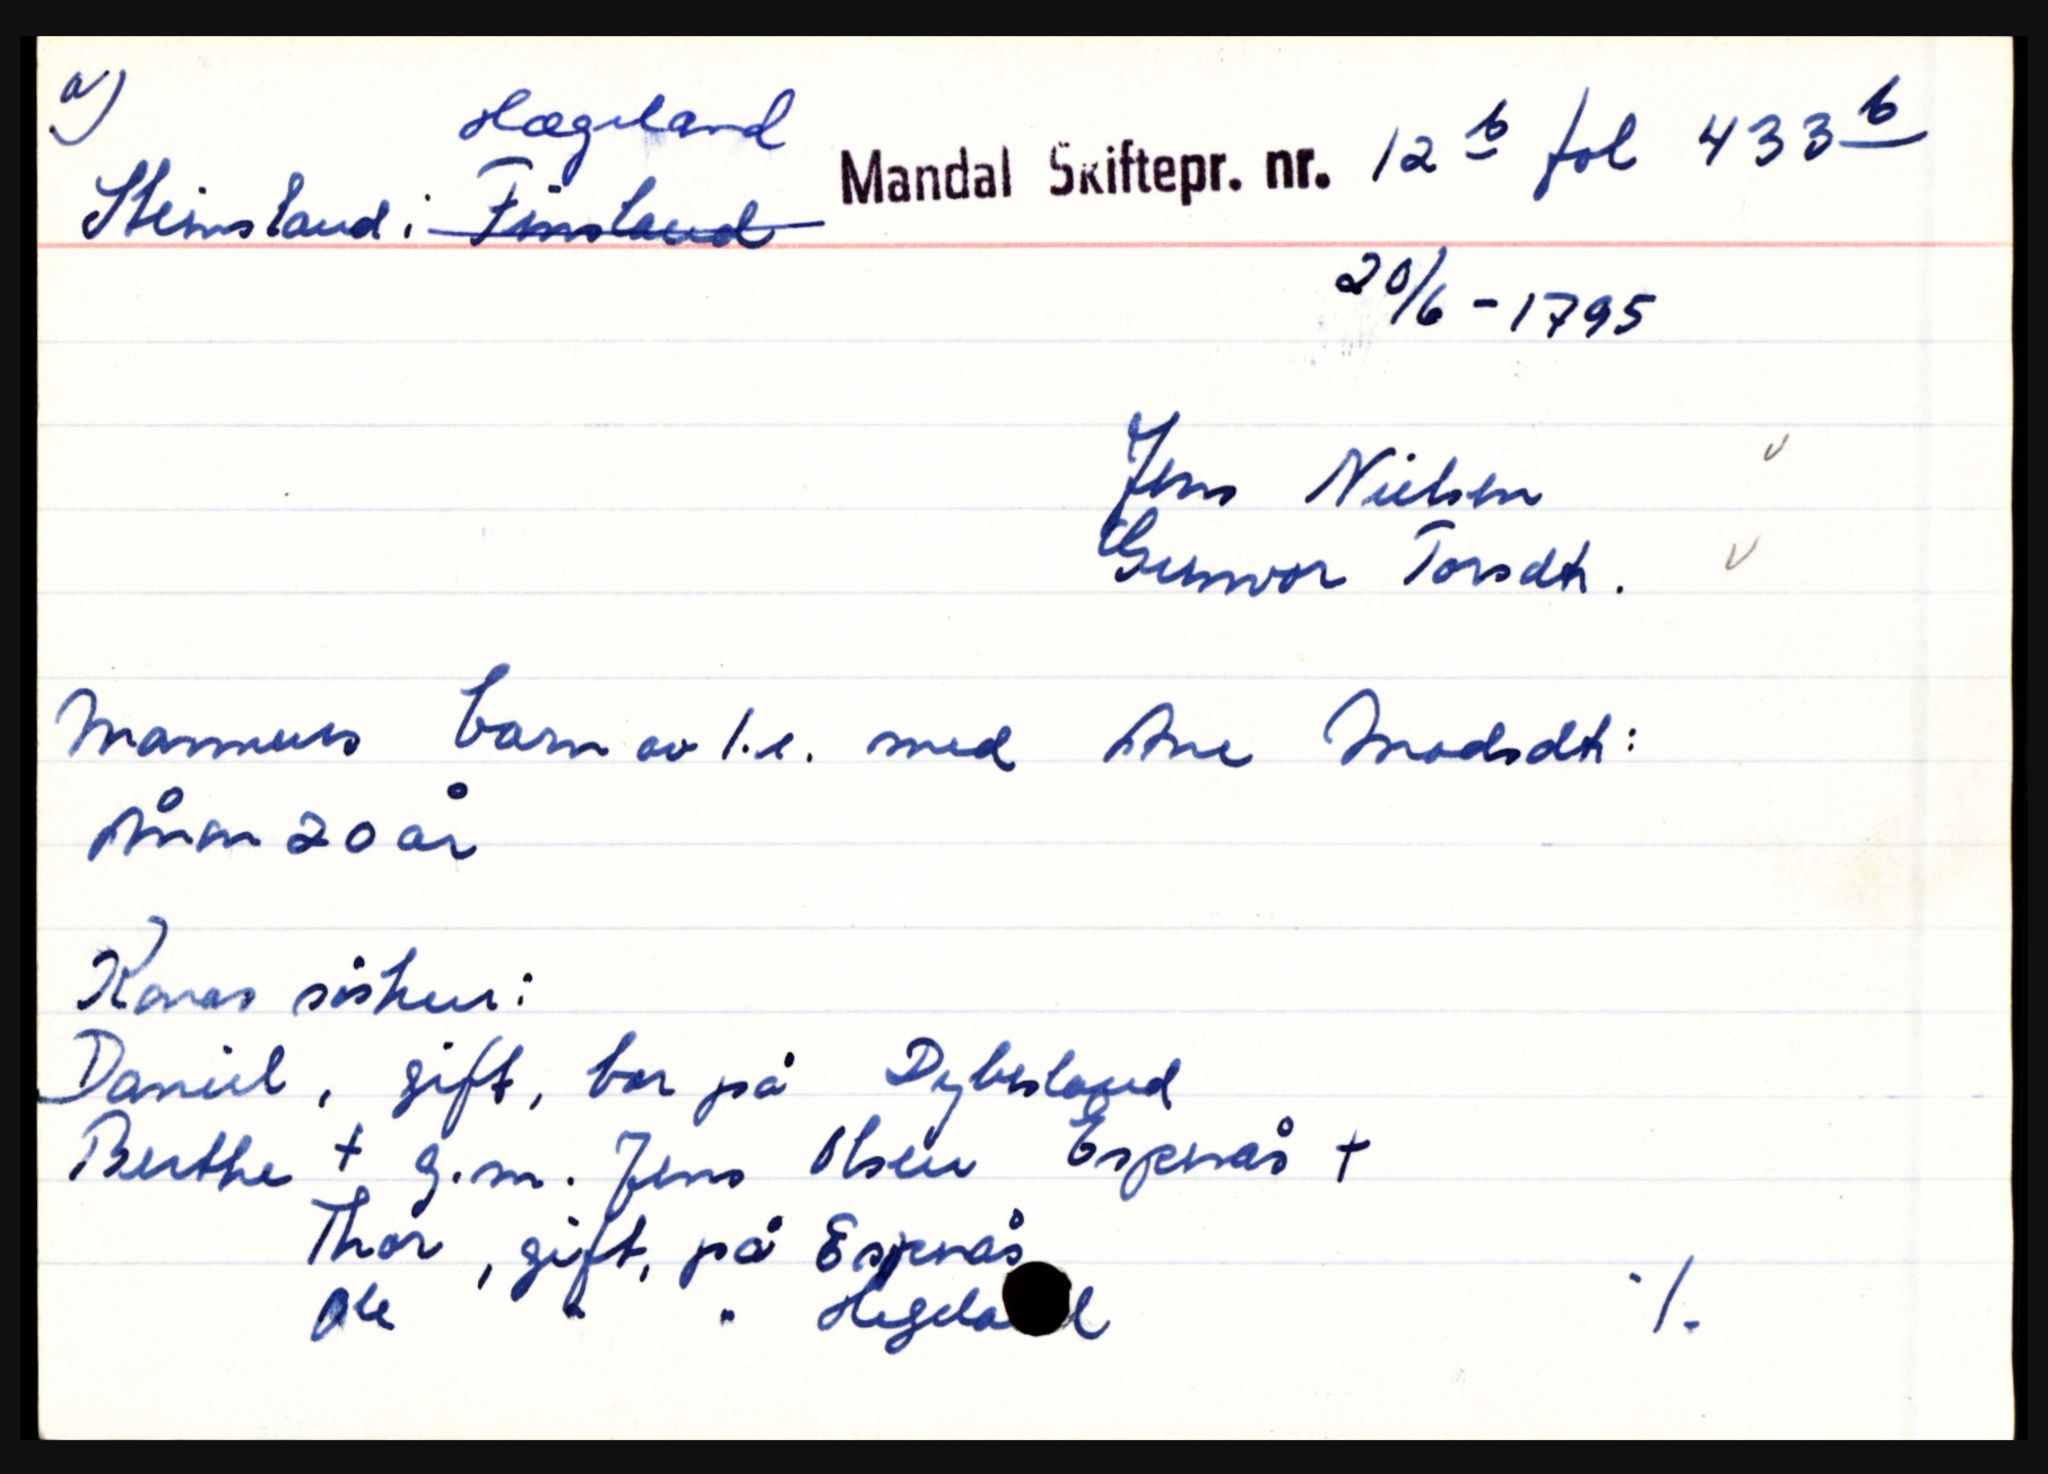 a)
Hægeland
Steinsland i ~~Finsland~~ Mandal Skiftepr. nr. 12 b fol 433 b
20/6 - 1795
Jens Nielsen v
Gunvor Torsdtr. v
Mannens barn av 1.e. med Ane Madsdtr:
Ånon 20 år
Konas søsken:
Daniel, gift, bor på Dybesland
Berthe + g.m. Jens Olsen Espenås +
Thor, gift, på Espenås
Ole " " Hegeland
./.